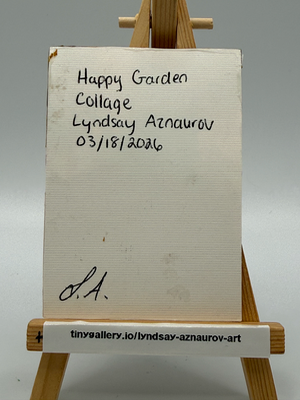 Happy Garden
Collage
Lyndsay Aznaurov
03/18/2026
L.A.
tinygallery.io/lyndsay-aznaurov-art